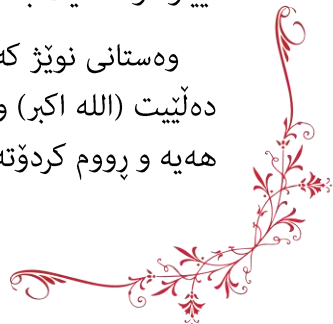 وەستانی نوێژ کە
دەڵێیت (الله اکبر) و
هەیە و ڕووم کردۆتە